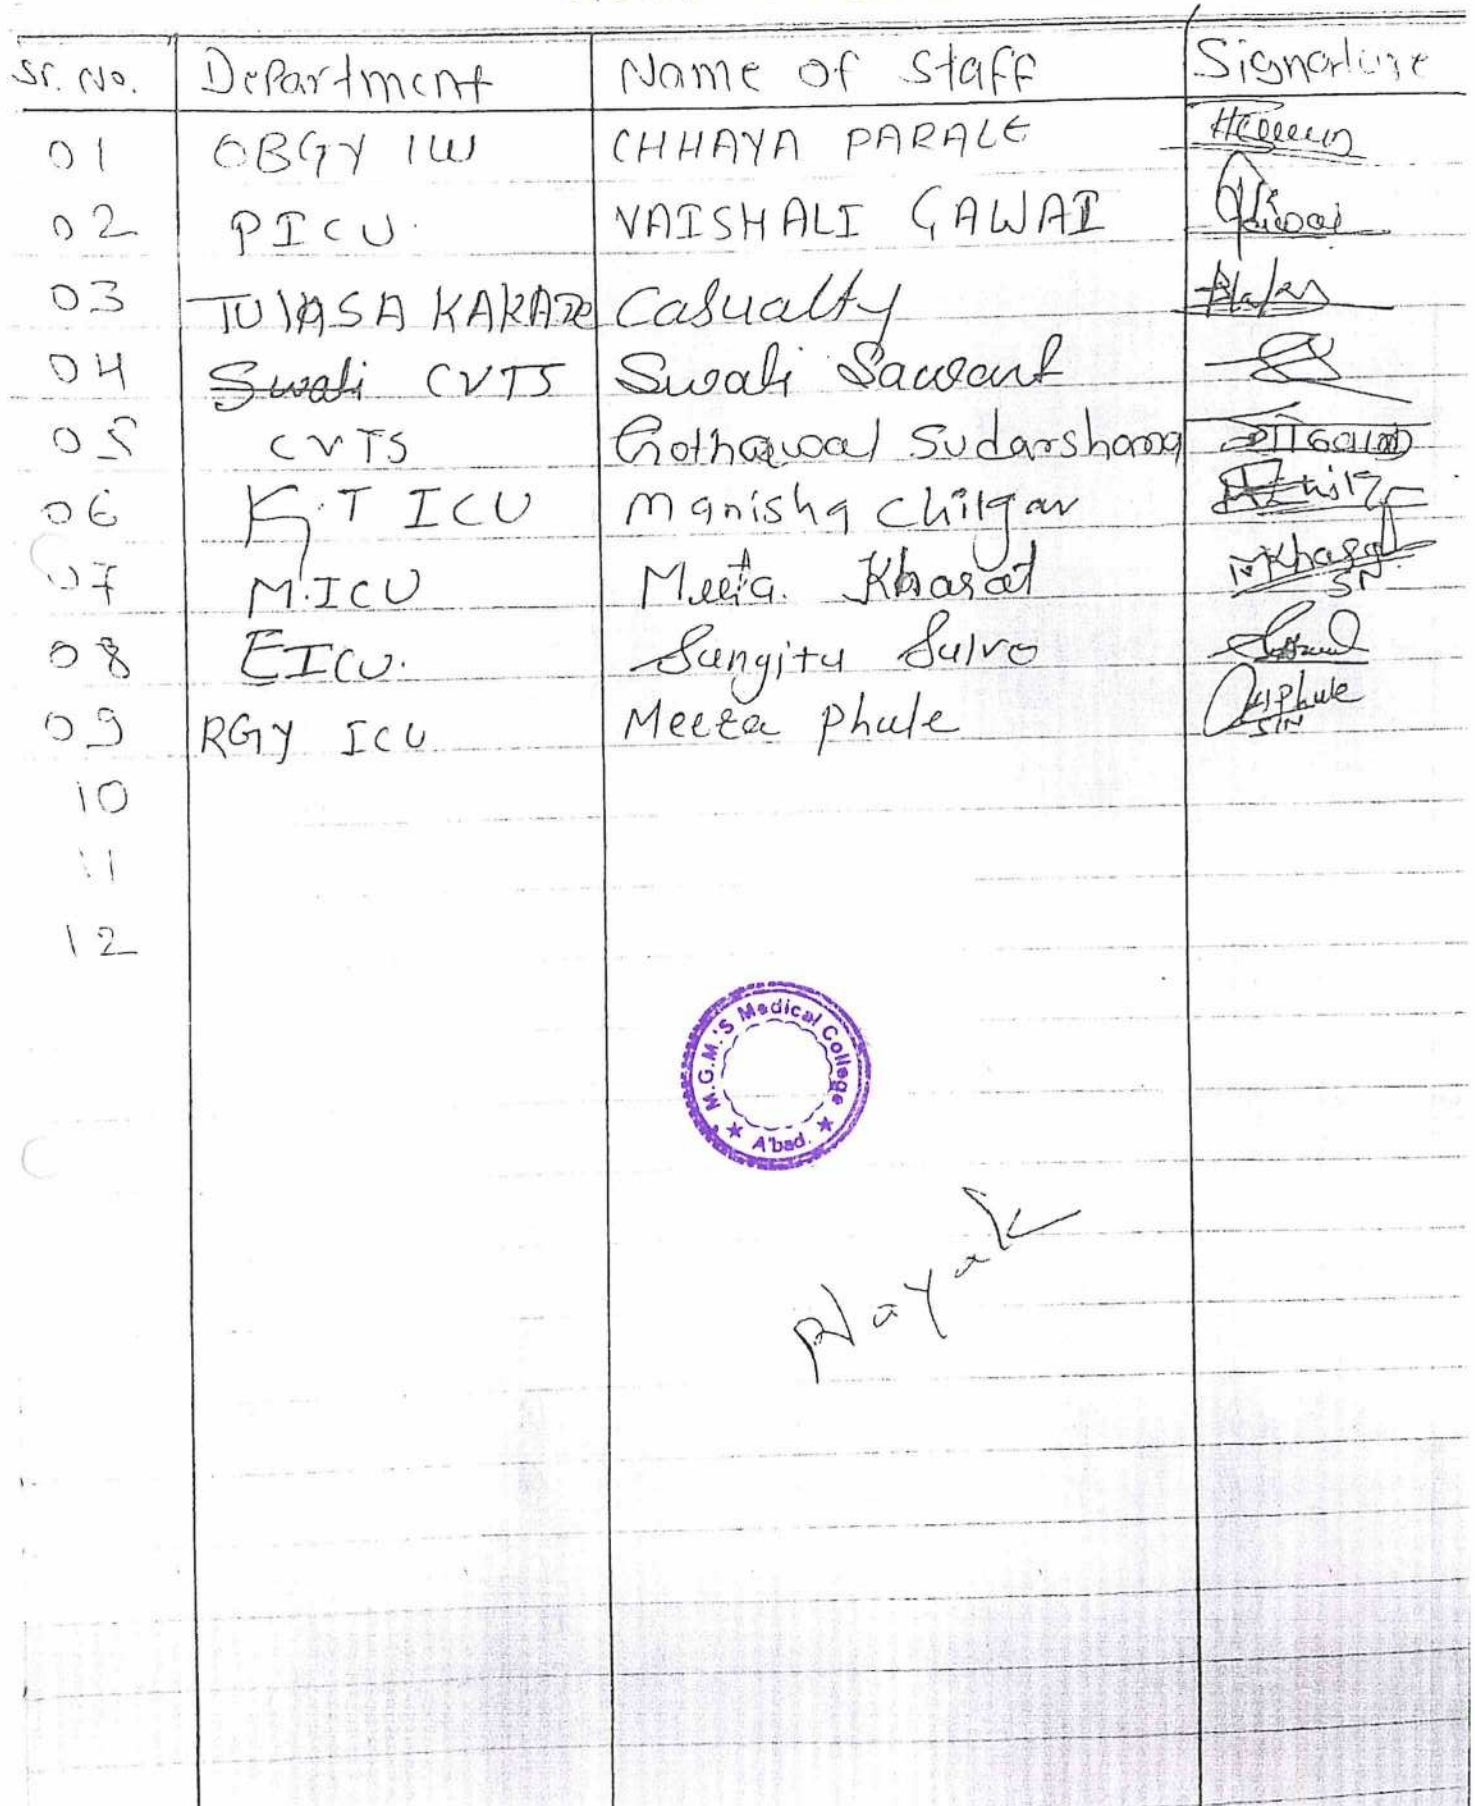 Sr. No. Department Name of Staff Signature
01 OBGY IW CHHAYA PARALE
02 PICU. VAISHALI GAWAI
03 KAKADE Casualty
04 Swati CVTS Swati Sawant
05 CVTS Gothawal Sudarshana
06 K.T ICU Manisha Chilgar
07 M.ICU Meeta. Kharat Kharat SN
08 EICU. Sangita Salve
09 RGY ICU Meera Phule Phule SIN
10
11
12
M.G.M.'S Medical College
★ A'bad. ★
Nayak